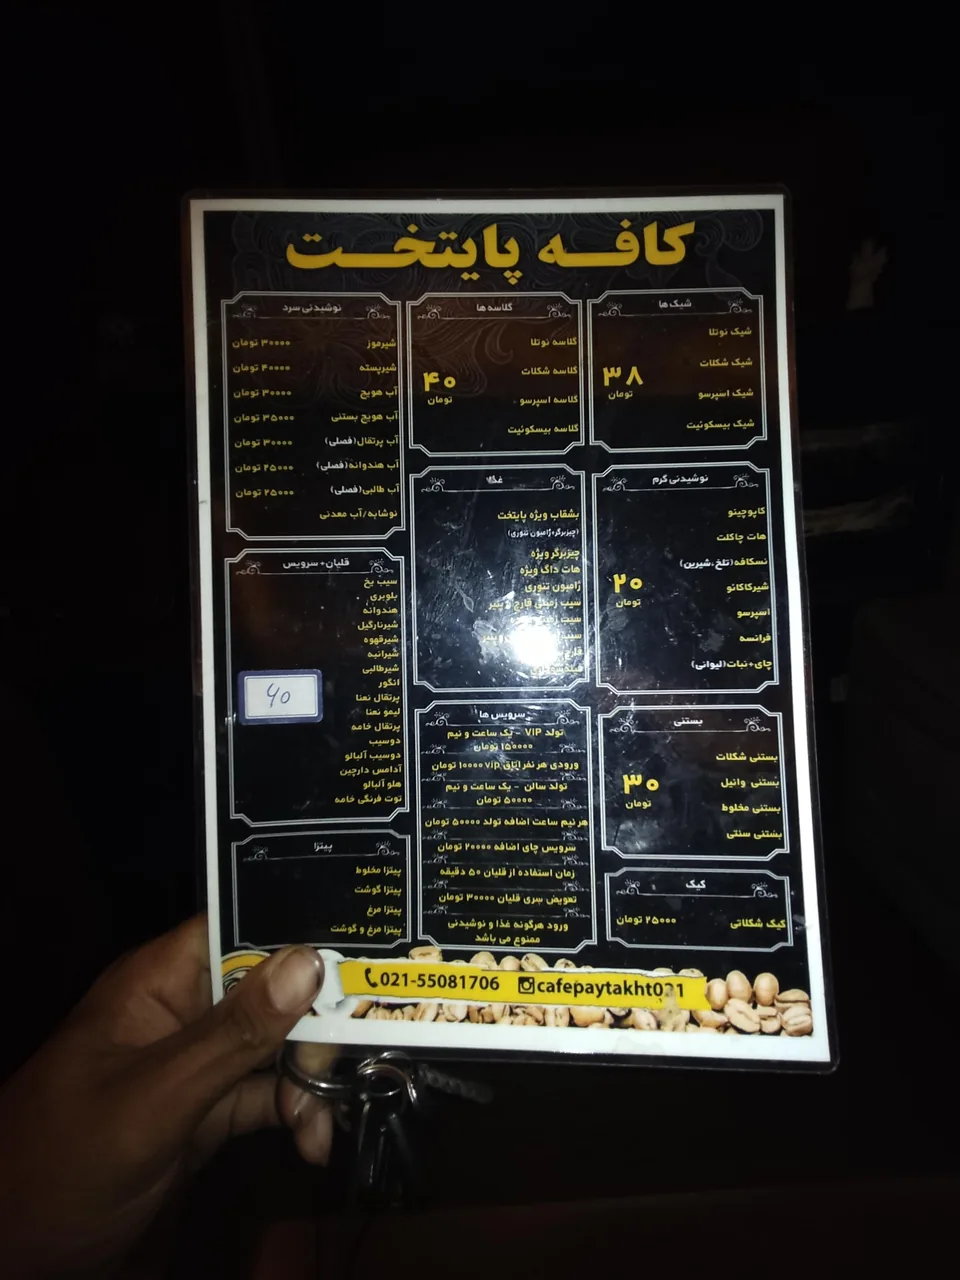 کافه پایتخت
شیک ها
شیک نوتلا
شیک شکلات
شیک اسپرسو
شیک بیسکوئیت
۳۸
تومان
گلاسه ها
گلاسه نوتلا
گلاسه شکلات
گلاسه اسپرسو
گلاسه بیسکوئیت
۴۰
تومان
نوشیدنی سرد
شیرموز ۳۰۰۰۰ تومان
شیرپسته ۴۰۰۰۰ تومان
آب هویج ۳۰۰۰۰ تومان
آب هویج بستنی ۳۵۰۰۰ تومان
آب پرتقال(فصلی) ۳۰۰۰۰ تومان
آب هندوانه(فصلی) ۲۵۰۰۰ تومان
آب طالبی(فصلی) ۲۵۰۰۰ تومان
نوشابه/آب معدنی
نوشیدنی گرم
کاپوچینو
هات چاکلت
نسکافه(تلخ،شیرین)
شیرکاکائو
اسپرسو
فرانسه
چای+نبات(لیوانی)
۲۰
تومان
غذا
بشقاب ویژه پایتخت
(چیزبرگر+ژامبون تنوری)
چیزبرگر ویژه
هات داگ ویژه
ژامبون تنوری
سیب زمینی قارچ و پنیر
سیب زمینی
سیب
قارچ
قلیان+ سرویس
سیب یخ
بلوبری
هندوانه
شیرنارگیل
شیرقهوه
شیرانبه
شیرطالبی
انگور
پرتقال نعنا
لیمو نعنا
پرتقال خامه
دوسیب
دوسیب آلبالو
آدامس دارچین
هلو آلبالو
توت فرنگی خامه
۶۰
بستنی
بستنی شکلات
بستنی وانیل
بستنی مخلوط
بستنی سنتی
۳۰
تومان
سرویس ها
تولد VIP - یک ساعت و نیم
۱۵۰۰۰۰ تومان
ورودی هر نفر اتاق vip ۱۰۰۰۰ تومان
تولد سالن - یک ساعت و نیم
۵۰۰۰۰ تومان
هر نیم ساعت اضافه تولد ۵۰۰۰۰ تومان
سرویس چای اضافه ۲۰۰۰۰ تومان
زمان استفاده از قلیان ۵۰ دقیقه
تعویض سری قلیان ۳۰۰۰۰ تومان
ورود هرگونه غذا و نوشیدنی
ممنوع می باشد
پیتزا
پیتزا مخلوط
پیتزا گوشت
پیتزا مرغ
پیتزا مرغ و گوشت
کیک
کیک شکلاتی ۲۵۰۰۰ تومان
021-55081706 cafepaytakht021